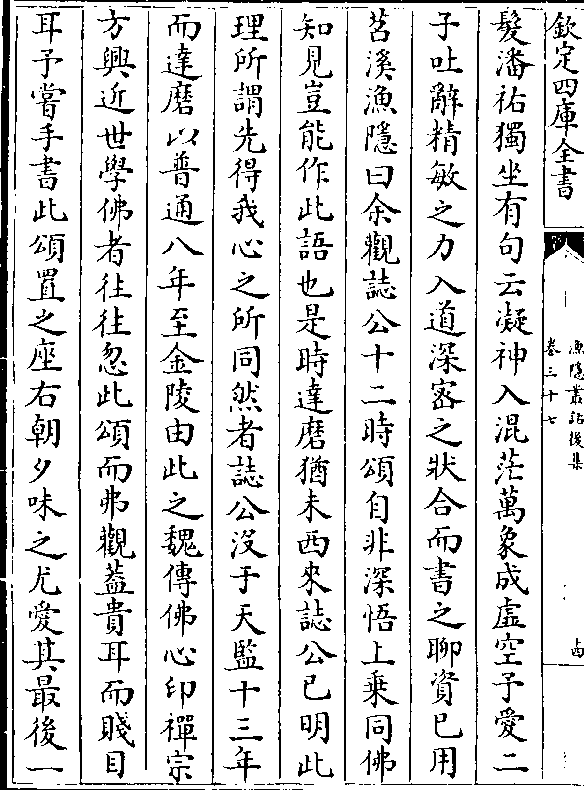 欽定四庫全書
漁隱叢話後集
卷三十七
髮潘祐獨坐有句云凝神入混茫萬象成虛空予愛二
子吐辭精敏之力入道深密之狀合而書之聊資已用
苕溪漁隱曰余觀誌公十二時頌自非深悟上乗同佛
知見豈能作此語也是時達磨猶未西來誌公已明此
理所謂先得我心之所同然者誌公没于天監十三年
而達磨以普通八年至金陵由此之魏傳佛心印禪宗
方興近世學佛者往往忽此頌而弗觀蓋貴耳而賤目
耳予嘗手書此頌置之座右朝夕味之尤愛其最後一